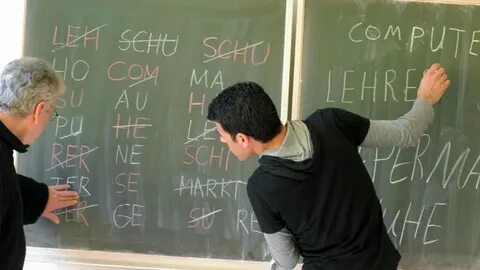 LEH SCHU SCHU
HO COM MA
SU AU H
PU HE
NE SCHI
TER SE MARKT
GE SU RE
COMPUTE
LEHRE
PERMA
UHE